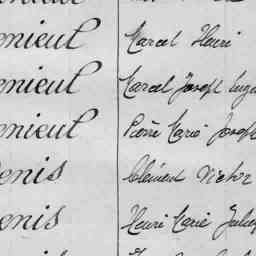 enieul Marcel Henri
enieul Marcel Joseph Euge
enieul Pierre Marie Joseph
enis Clément Victor
enis Henri Marie Julie